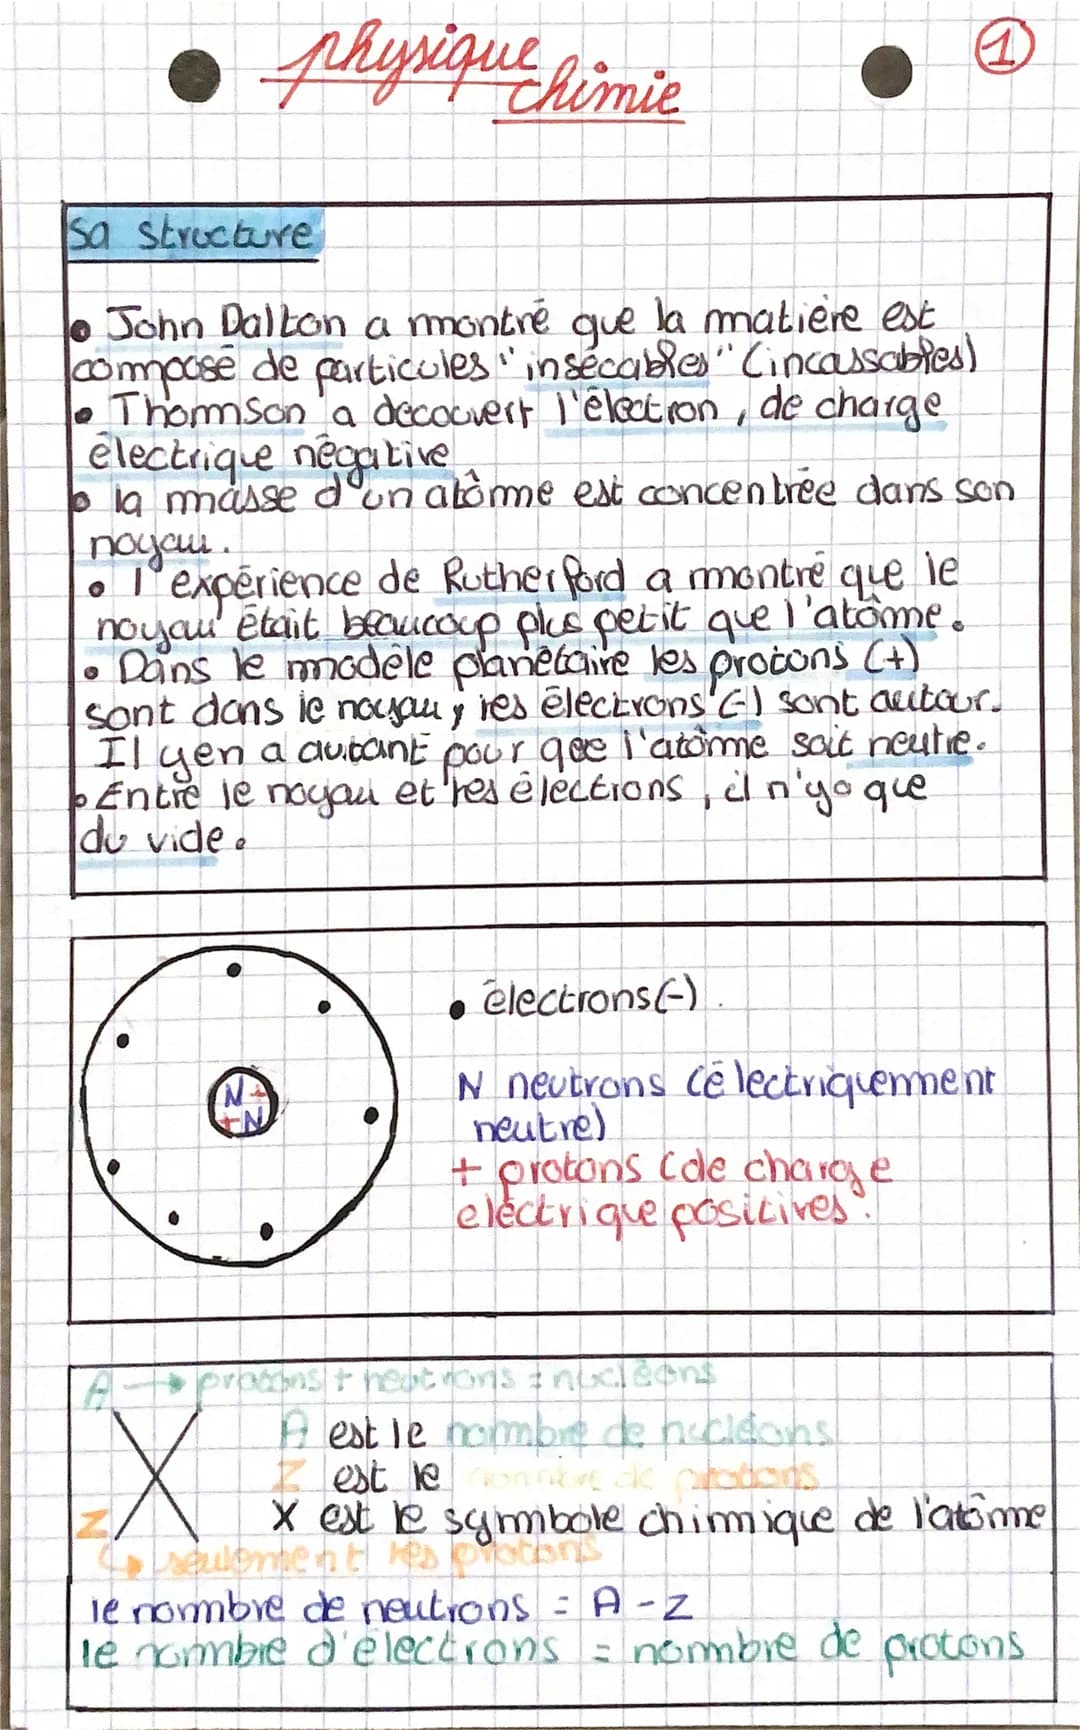 physique
chimie
1
Sa structure
• John Dalton a montré que la matière est
composé de particules "insécables" (incassables)
• Thomson a découvert l'électron, de charge
électrique négative
• la masse d'un atôme est concentrée dans son
noyau.
• l'expérience de Rutherford a montré que le
noyau était beaucoup plus petit que l'atôme.
• Dans le modèle planétaire les protons (+)
sont dans le noyau, les électrons (-) sont autour.
Il y en a autant pour que l'atôme soit neutre.
• Entre le noyau et les électrons, il n'y a que
du vide.
• électrons (-).
N +
+ N
N neutrons (électriquement
neutre)
+ protons (de charge
eléctrique positives.
A → protons + neutrons = nucléons
A est le nombre de nucléons
Z est le nombre de protons
X
X est le symbole chimique de l'atôme
Z
↳ seulement les protons
le nombre de neutrons = A - Z
le nombre d'électrons = nombre de protons